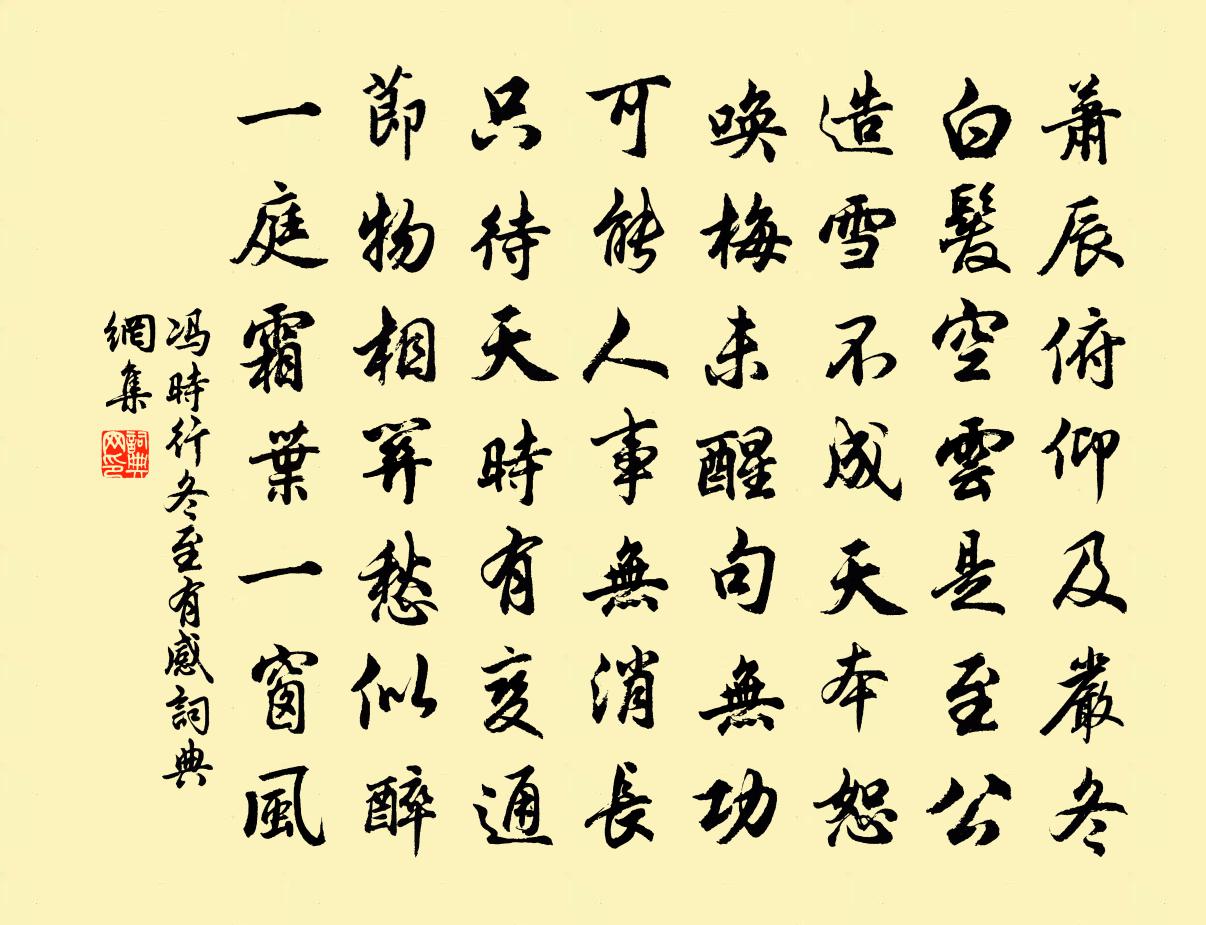 蕭辰俯仰及嚴冬
白髮空雲是至公
造雪不成天本恕
喚梅未醒句無功
可能人事無消長
只待天時有變通
節物相羿愁似醉
一庭霜葉一窗風
馮時行冬至有感詞典
網集
詞典
网印